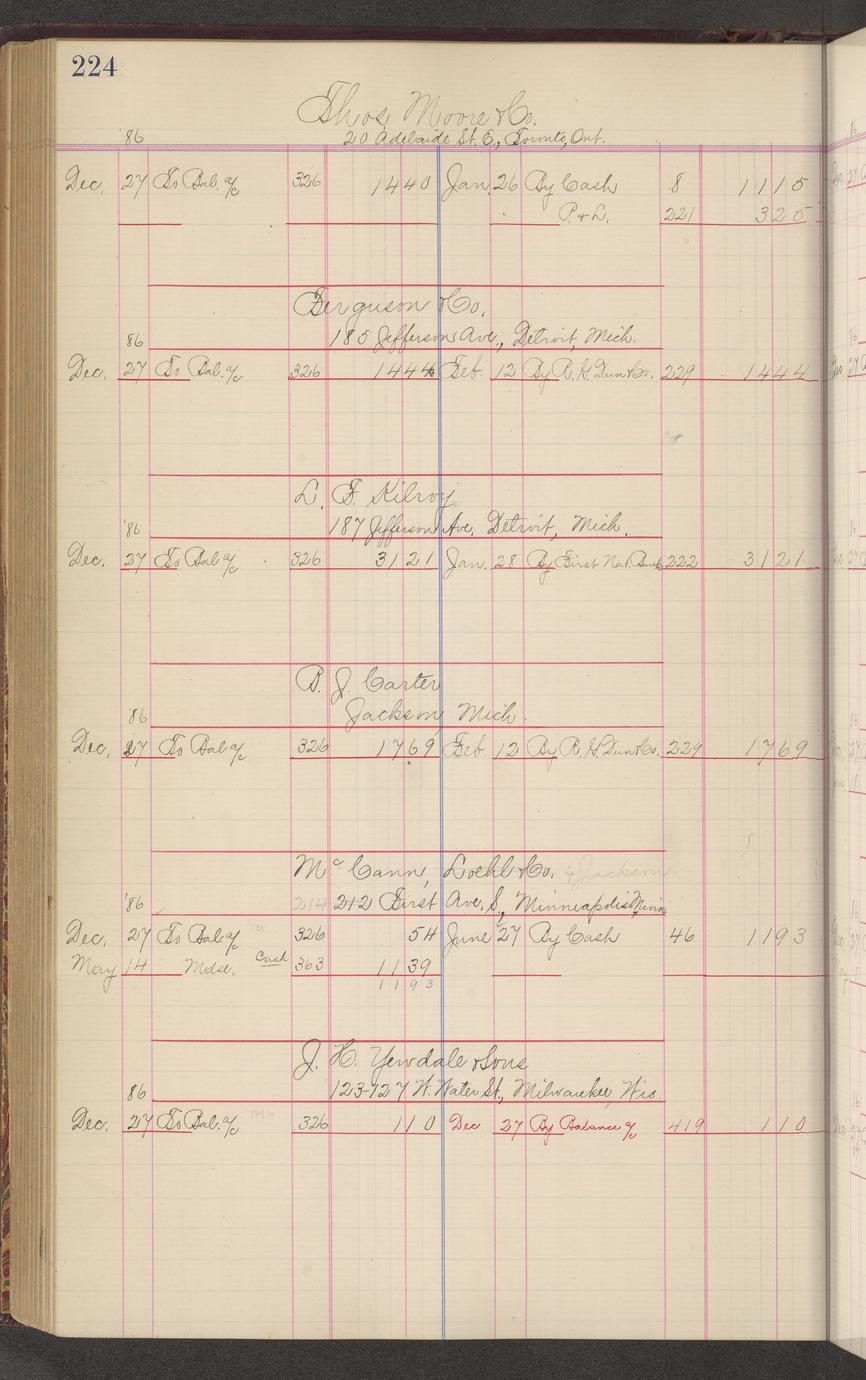 224
Thos. Moore & Co.
'86 20 Adelaide St. E., Toronto, Ont.
Dec. 27 To Bal. a/c 326 1440 Jan 26 By Cash 8 1115
" P. & L. 221 325
Ferguson & Co.
86 185 Jefferson Ave., Detroit Mich.
Dec. 27 To Bal. a/c 326 1444 Feb. 12 By R. G. Dun & Co. 229 1444
L. F. Kilroy
'86 187 Jefferson Ave, Detroit, Mich.
Dec. 27 To Bal a/c 326 3121 Jan. 28 By First Nat. Bank 222 3121
B. J. Carter
86 Jackson, Mich.
Dec. 27 To Bal a/c 326 1769 Feb. 12 By R. G. Dun & Co. 229 1769
McCann, Loehl & Co. & Jackson
'86 214 212 First Ave, S., Minneapolis Minn
Dec. 27 To Bal. a/c 326 54 June 27 By Cash 46 1193
May 14 Mdse. Cash 363 1139
1193
J. H. Yewdale & Sons
86 123-127 W. Water St., Milwaukee, Wis.
Dec. 27 To Bal. a/c 326 110 Dec 27 By Balance a/c 419 110